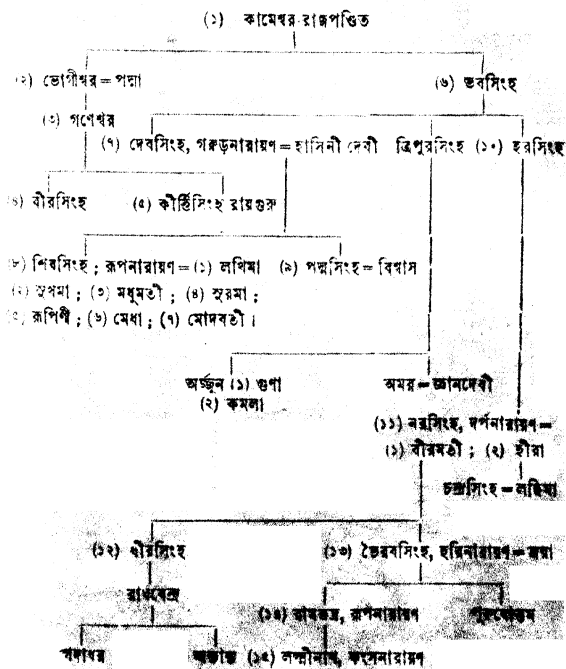 (১) কামেশ্বর রাজপণ্ডিত
(২) ভোগীশ্বর = পদ্মা (৬) ভবসিংহ
(৩) গণেশ্বর
(৭) দেবসিংহ, গরুড়নারায়ণ = হাসিনী দেবী ত্রিপুরসিংহ (১০) হরসিংহ
(৪) বীরসিংহ (৫) কীর্ত্তিসিংহ রায়গুরু
(৮) শিবসিংহ ; রূপনারায়ণ = (১) লখিমা (৯) পদ্মসিংহ = বিশ্বাস
(২) সুষমা ; (৩) মধুমতী ; (৪) সুরমা ;
(৫) রূপিণী ; (৬) মেধা ; (৭) মোদবতী ।
অর্জ্জুন (১) গুণা অমর = জ্ঞানদেবী
(২) কমলা
(১১) নরসিংহ, দর্পনারায়ণ =
(১) বীরমতী ; (২) হীরা
চন্দ্রসিংহ = লছিমা
(১২) ধীরসিংহ (১৩) ভৈরবসিংহ, হরিনারায়ণ = জয়া
রাঘবেন্দ্র
(১৪) রামভদ্র, রূপনারায়ণ পুরুষোত্তম
গদাধর (১৫) লক্ষ্মীনাথ, কংসনারায়ণ